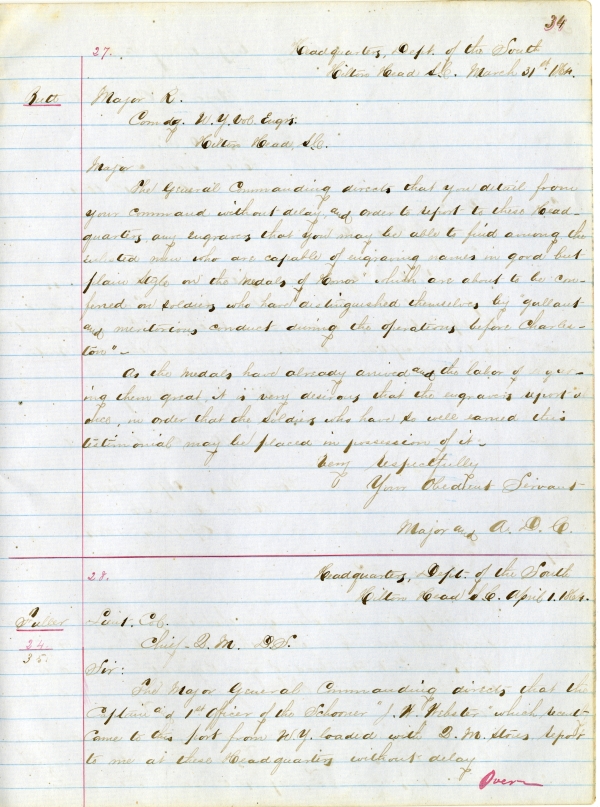 34
27.
Headquarters, Dept. of the South
Hilton Head, S.C. March 31st 1864.
Butts
Major R.
Comdg. N.Y. Vol. Engrs.
Hilton Head, S.C.
Major
The General Commanding directs that you detail from
your command without delay, and order to report to these Head-
quarters, any engravers that you may be able to find among the
enlisted men who are capable of engraving names in good but
plain style on the "Medals of Honor" which are about to be con-
ferred on soldiers who have distinguished themselves by "gallant
and meritorious conduct during the operations before Charles-
ton"-
As the medals have already arrived and the labor of
ing them great, it is very desirous that the engravers report at
once, in order that the soldiers who have so well earned this
testimonial may be placed in possession of it-
Very Respectfully
Your Obedient Servant
Major and A. D. C.
28.
Headquarters, Dept. of the South
Hilton Head S.C. April 1. 1864.
Fuller
Lieut. Col.
24.
Chief Q. M. D.S.
35.
Sir:
The Major General Commanding directs that the
Captain and 1st Officer of the Schooner "J. W. Webster" which
came to this port from N.Y. loaded with Q. M. Stores report
to me at these Headquarters without delay
Over